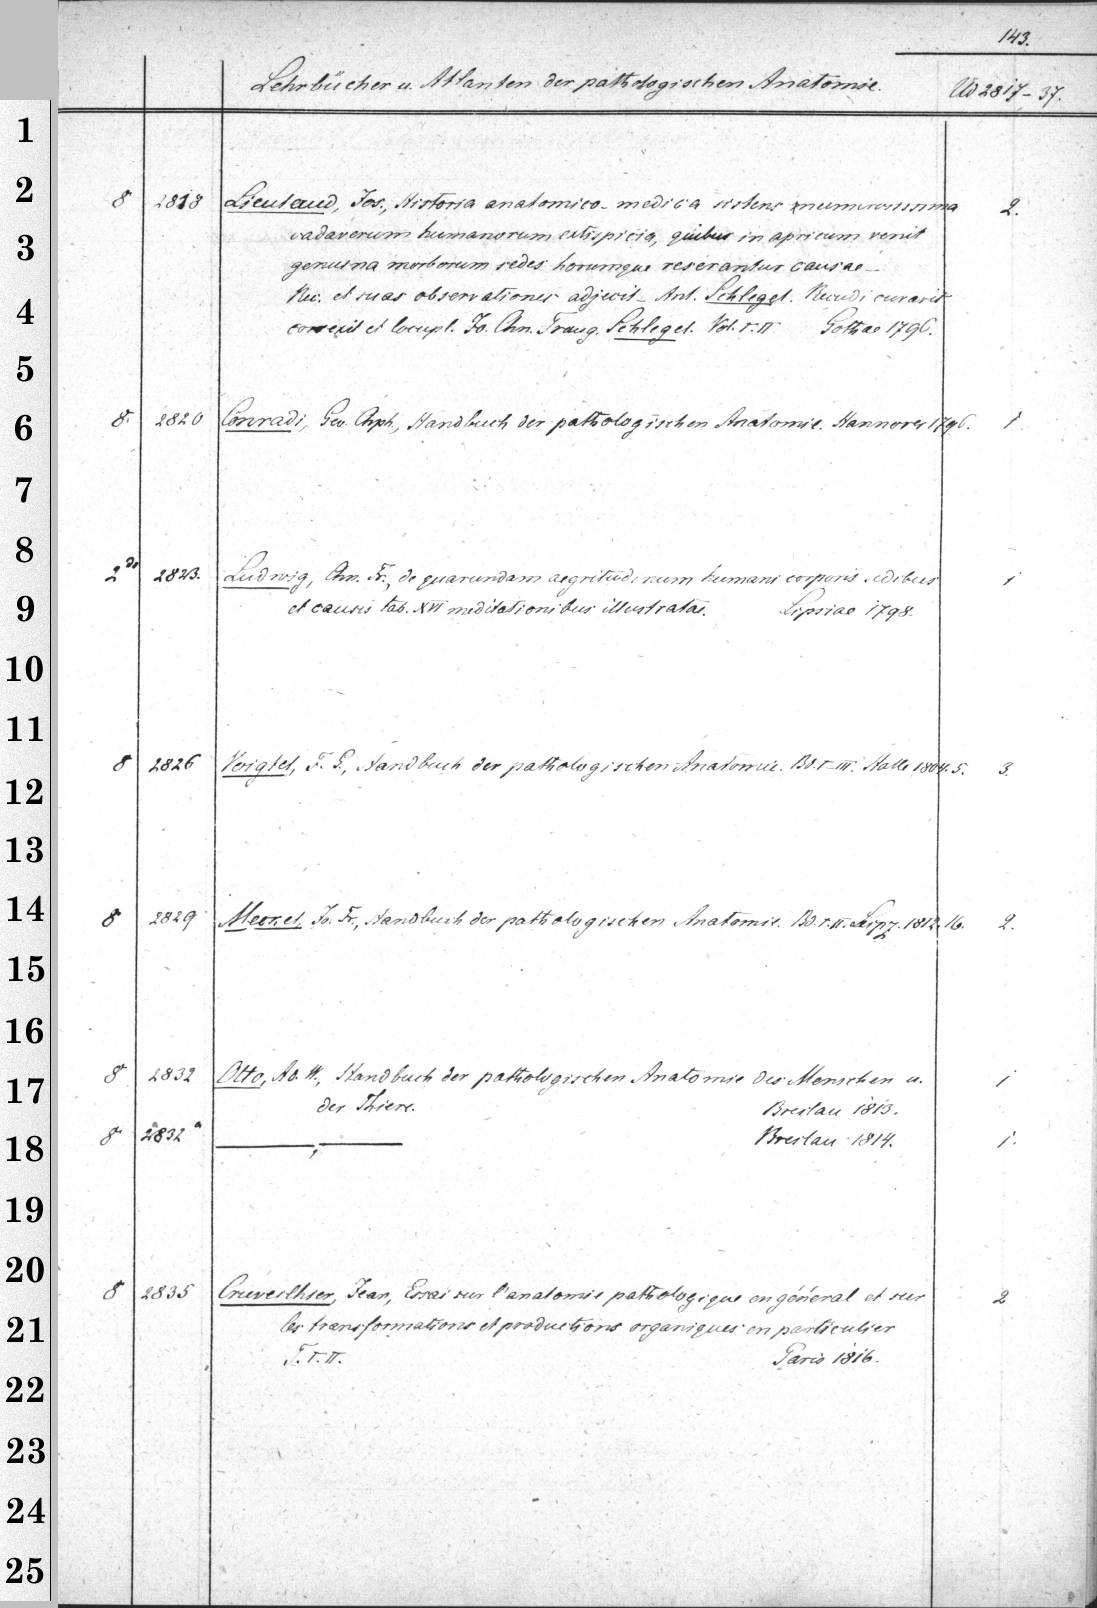 143.
Lehrbücher u. Atlanten der pathologischen Anatomie. Ud 2817-37.
1
2
8 2818 Lieutaud, Jos., Historia anatomico-medica sistens numerosissima 2.
3
cadaverum humanorum extispicia, quibus in apricum venit
genuina morborum sedes horumque reserantur causae_
4
Rec. et suas observationes adjecit_ Ant. Schlegel. Recudi curavit
correxit et locupl. Jo. Chn. Traug. Schlegel. Vol. I-II Gothae 1796.
5
6
8. 2820 Conradi, Geo. Chph., Handbuch der pathologischen Anatomie. Hannover 1796. 1
7
8
2do 2823. Ludwig, Chn. Fr., de quarundam aegritudinum humani corporis sedibus 1
9
et causis tab. XVI meditationibus illustratas. Lipsiae 1798.
10
11
8 2826 Voigtel, F. G., Handbuch der pathologischen Anatomie. Bd. I-III. Halle 1804.5. 3.
12
13
14
8 2829 Meckel, Jo. Fr., Handbuch der pathologischen Anatomie. Bd. I-II. Leipz. 1812.16. 2.
15
16
8 2832 Otto, Ad. W., Handbuch der pathologischen Anatomie des Menschen u. 1
17
der Thiere. Breslau 1813.
8 2832a ——, —— Breslau 1814. 1.
18
19
20
8 2835 Cruveilhier, Jean, Essai sur l'anatomie pathologique en général et sur 2
21
les transformations et productions organiques en particulier
T. I-II. Paris 1816.
22
23
24
25